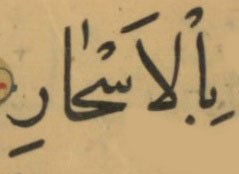 بِاْلاَسْحَارِ